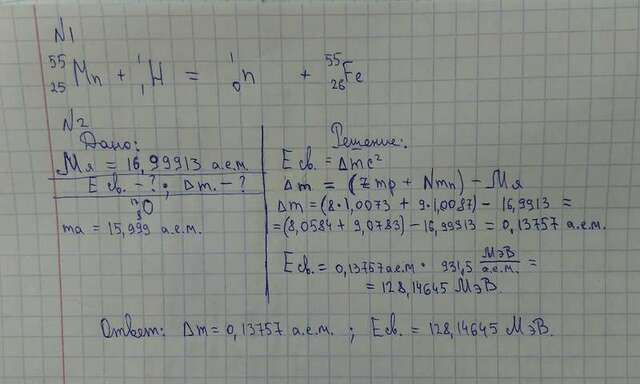 N1
⁵⁵₂₅Mn + ¹₁H = ¹₀n + ⁵⁵₂₆Fe
N2
Дано:
Mя = 16,99913 а.е.м
Eсв. - ? ; Δm. - ?
¹⁷₈O
ma = 15,999 а.е.м.
Решение:
Eсв. = Δmc²
Δm = (Zmp + Nmn) - Mя
Δm = (8·1,0073 + 9·1,0087) - 16,9913 =
= (8,0584 + 9,0783) - 16,99913 = 0,13757 а.е.м.
Eсв. = 0,13757 а.е.м · 931,5 МэВ/а.е.м. =
= 128,14645 МэВ.
Ответ: Δm = 0,13757 а.е.м. ; Eсв. = 128,14645 МэВ.